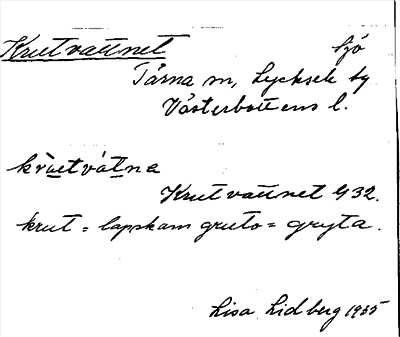 Krutvattnet sjö
Tärna sn, Lycksele tg
Västerbottens l.
krùetvátna
Krutvattnet G 32.
krut = lapskan gruto = gryta.
Lisa Lidberg 1935